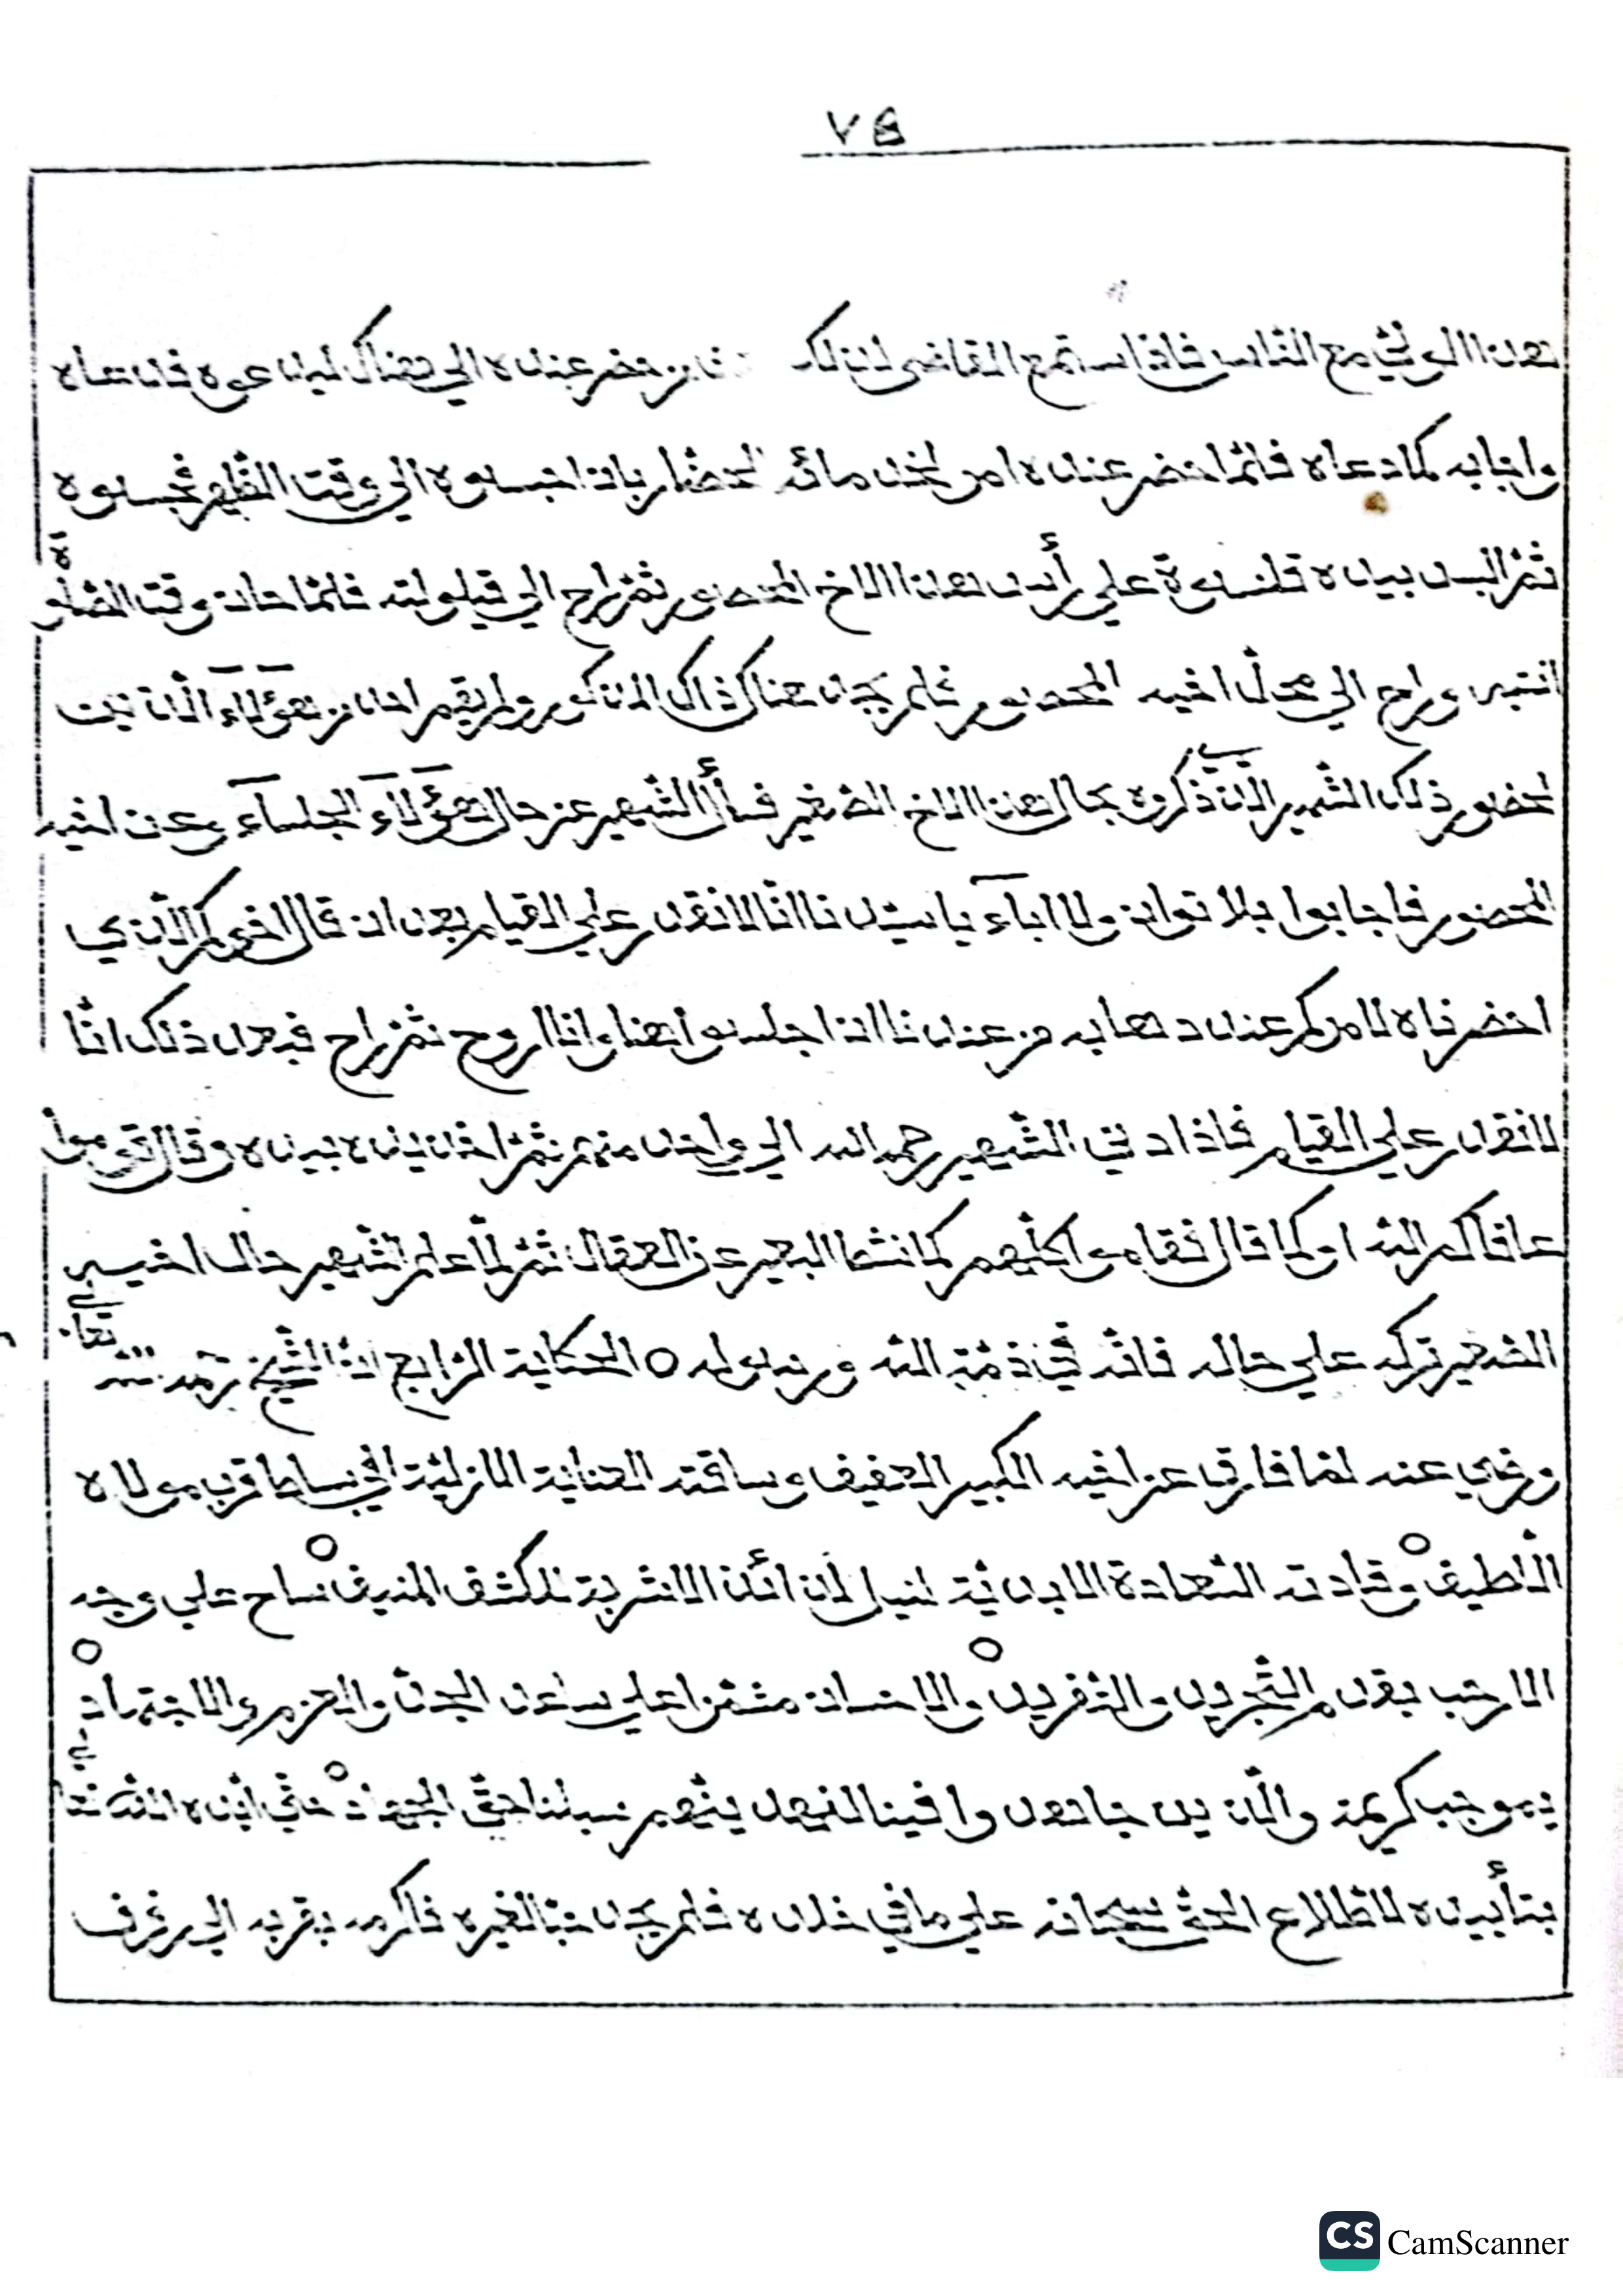 ٧٤
هذا الولي مع الناس فاذا سمع القاضي لذلك من حضر عنده الي هناك ليدعوه فدعاه
واجابه كما دعاه فلما حضر عنده امر لخدمائه الحضار بان اجلسوه الي وقت الظهر فجلسوه
ثم البس بيده قلنسوة علي رأس هذا الاخ المحصور ثم راح الي قيلولته فلما حان وقت الصلوة
انتبه وراح الي محل اخيه المحصور فلم يجد هناك ذاك المذكور ولم يقم احد من هؤلاء الذين
لحضور ذلك الشهير الذي ذكروه بحال هذا الاخ الصغير فسأل الشهير عن حال هؤلاء الجلساء وعن اخيه
المحصور فاجابوا بلا توان ولا اباء يا سيدنا انا لا نقدر علي القيام بعد ان قال اخوكم الذي
احضرناه لامركم عند ذهابه من عندنا ان اجلسوا هنا وانا اروح ثم راح فبعد ذلك انا
لا نقدر علي القيام فاذا دني الشهير رحمه الله الي واحد منهم ثم اخذ يده بيده وقال قوموا
عافاكم الله او كما قال فقاموا كلهم كما نشط البعير عن العقال ثم لما علم الشهير حال اخيه
الصغير تركه علي حاله فانه في ذمة الله ورسوله ○ الحكاية الرابع ان الشيخ رحمه الله تعالي
ورضي عنه لما فارق عن اخيه الكبير العفيف وساقته العناية الازلية الي بساط قرب مولاه
اللطيف ○ وقادته السعادة الابدية لنيل لذائذ الاشربة للكشف المنيف ساح علي وجه
الارض بقدم التجريد والتفريد ○ والاحسان مشمرا علي ساعد الجد والعزم والاجتهاد ○
بموجب كريمة والذين جاهدوا فينا لنهدينهم سبلنا حق الجهاد ○ حتي ايده الله تعالي
بتأييده لاطلاع الحق سبحانه علي ما في خلده فلم يجد حبا لغيره فاكرمه بقربه الي رفرف
CS CamScanner